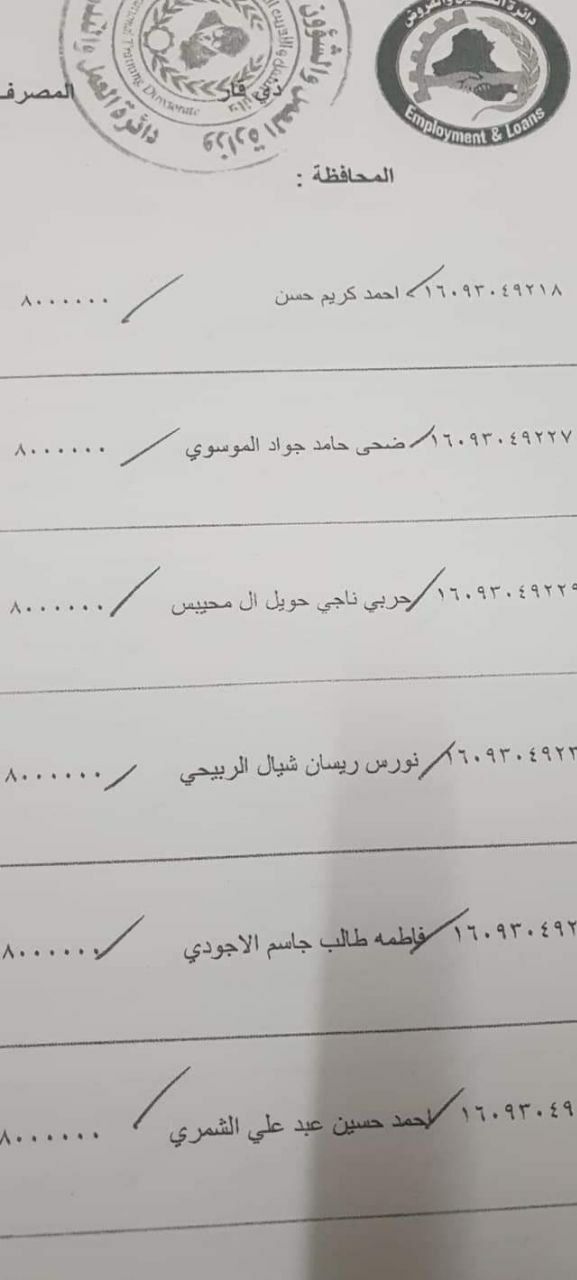 دائرة التشغيل والقروض
Employment & Loans
وزارة العمل والشؤون
دائرة العمل والتدريب
Training Directorate
ذي قار
المصرف
المحافظة :
١٦٠٩٣٠٤٩٢١٨ احمد كريم حسن ٨٠٠٠٠٠٠
١٦٠٩٣٠٤٩٢٢٧ ضحى حامد جواد الموسوي ٨٠٠٠٠٠٠
١٦٠٩٣٠٤٩٢٢٩ حربي ناجي حويل ال محيبس ٨٠٠٠٠٠٠
١٦٠٩٣٠٤٩٢٣ نورس ريسان شيال الربيحي ٨٠٠٠٠٠٠
١٦٠٩٣٠٤٩٢ فاطمه طالب جاسم الاجودي ٨٠٠٠٠٠٠
١٦٠٩٣٠٤٩ احمد حسين عبد علي الشمري ٨٠٠٠٠٠٠